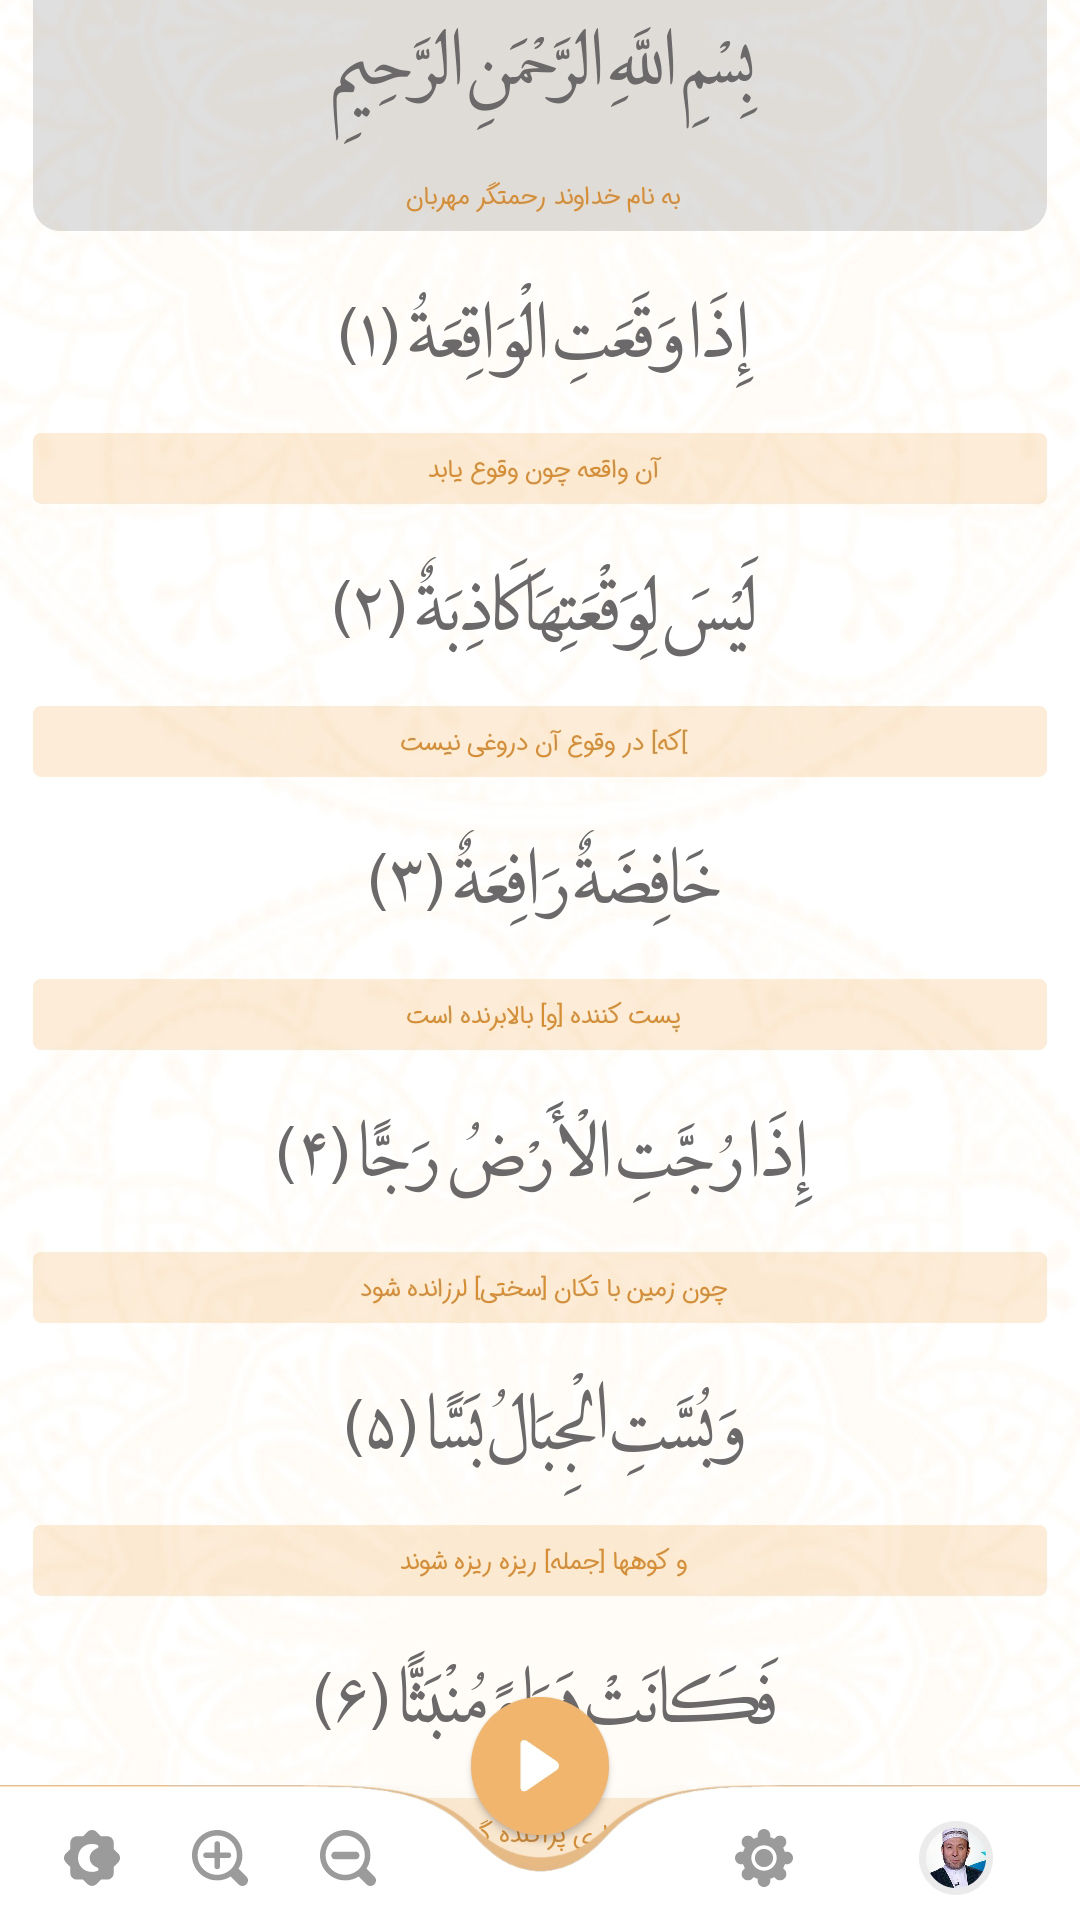 بِسْمِ اللَّهِ الرَّحْمَنِ الرَّحِيمِ
به نام خداوند رحمتگر مهربان
إِذَا وَقَعَتِ الْوَاقِعَةُ (۱)
آن واقعه چون وقوع یابد
لَيْسَ لِوَقْعَتِهَا كَاذِبَةٌ (۲)
]که] در وقوع آن دروغی نیست
خَافِضَةٌ رَافِعَةٌ (۳)
پست کننده [و] بالابرنده است
إِذَا رُجَّتِ الْأَرْضُ رَجًّا (۴)
چون زمین با تکان [سختی] لرزانده شود
وَبُسَّتِ الْجِبَالُ بَسًّا (۵)
و کوهها [جمله] ریزه ریزه شوند
فَكَانَتْ مُنْبَثًّا (۶)